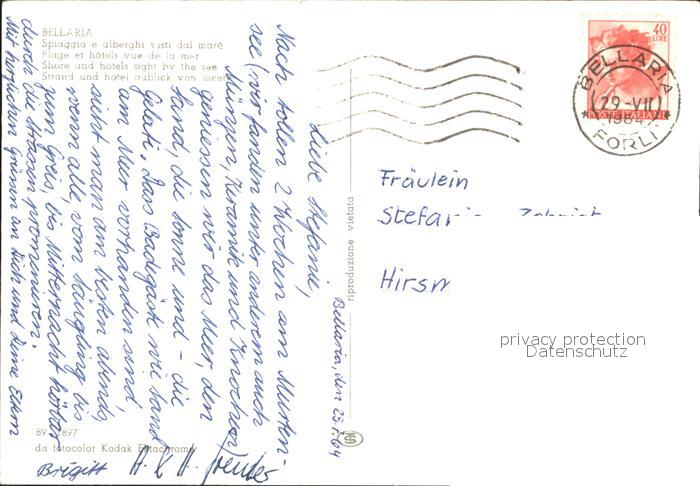 BELLARIA
Spiaggia e alberghi visti dal mare
Plage et hôtels vue de la mer
Shore and hotels sight by the see
Strand und hotel aublick von meer
40
LIRE
POSTE ITALIANE
BELLARIA
(29-VII)
1964
FORLI
Fräulein
Stefa
Hirsm
privacy protection
Datenschutz
riproduzione vietata
Bellaria, den 29.7.64
Liebe Stefanie,
Nach tollen 2 Wochen am Murten-
see (wir fanden unter anderem auch
Münzen, Keramik und Knochen)
geniessen wir das Meer, den
Sand, die Sonne und - die
Gelati. Dass Badegäste wie Sand
am Meer vorhanden sind,
sieht man am besten abends,
wenn alle, vom Säugling bis
zum Greis, bis Mitternacht
durch die Strassen promenieren.
Mit herzlichen Grüssen an Dich und Deine Eltern
89 897
da fotocolor Kodak Ektachrome
Brigitt H. & H.